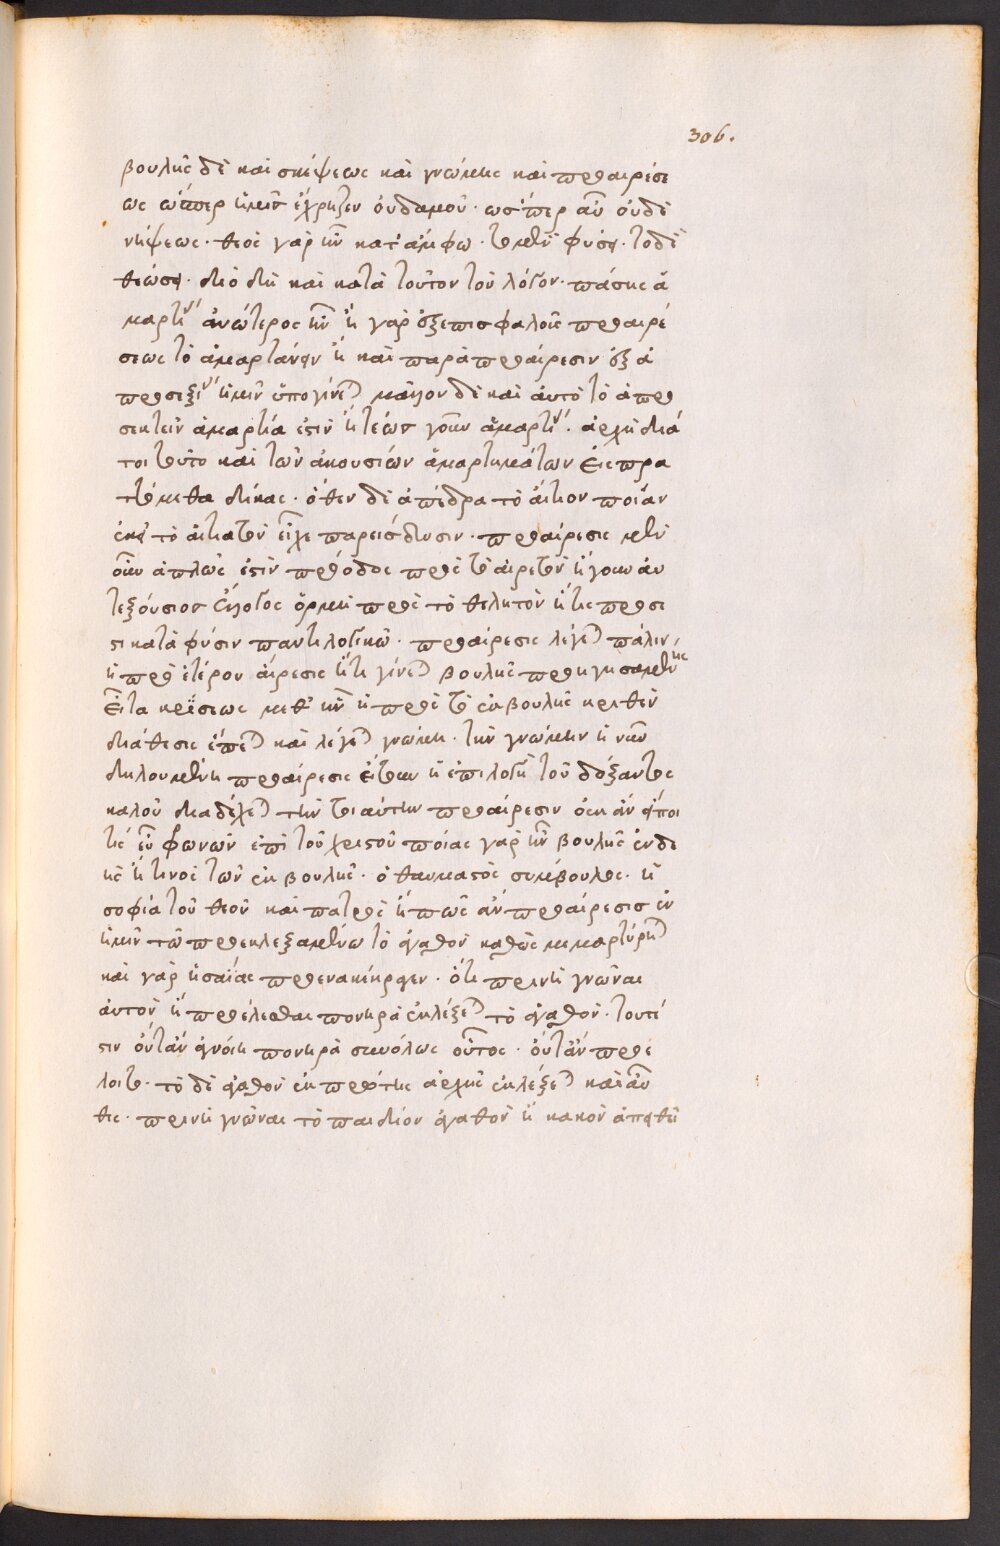 306.
βουλῆς δὲ καὶ σκέψεως καὶ γνώμης καὶ προαιρέσε
ως ὥσπερ ἡμεῖς ἔχρηζεν οὐδαμοῦ· ὥσπερ ἂν οὐδὲ
νήψεως· θεὸς γὰρ ἦν κατ' ἄμφω· τὸ μὲν φύσει· τὸ δὲ
θεώσει· διὸ δὴ καὶ κατὰ τοῦτον τὸν λόγον· πάσης ἁ
μαρτίας ἀνώτερος ἦν ἢ γὰρ ἐξ ἐπισφαλοῦς προαιρέ
σεως τὸ ἁμαρτάνειν ἢ καὶ παρὰ προαίρεσιν ἐξ ἀ
προσεξίας ἡμῖν ὑπογίνεται μᾶλλον δὲ καὶ αὐτὸ τὸ ἀπρο
σεκτεῖν ἁμαρτία ἐστὶν ἢ τέως γοῦν ἁμαρτίας ἀρχὴ διά
τοι τοῦτο καὶ τῶν ἀκουσίων ἁμαρτημάτων εἰσπρα
τόμεθα δίκας· ὅθεν δὲ ἀπέδρα τὸ αἴτιον ποίαν
ἐκεῖ τὸ αἰτιατὸν εἶχε παρείσδυσιν· προαίρεσις μὲν
οὖν ἁπλῶς ἐστὶν πρόοδος πρὸς τὸ αἱρετὸν ἤγουν αὐ
τεξούσιος εὔλογος ὁρμὴ πρὸς τὸ θελητὸν ἥτις πρόσε
στι κατὰ φύσιν παντὶ λογικῷ· προαίρεσις λέγεται πάλιν
ἡ πρὸ ἑτέρου αἵρεσις ἥτις γίνεται βουλῆς προηγησαμένης
εἶτα κρίσεως μεθ' ἣν ἡ πρὸς τὸ ἐκ βουλῆς κριθὲν
διάθεσις ἕπεται καὶ λέγεται γνώμη· τὴν γνώμην ἡ νῦν
δηλουμένη προαίρεσις εἴτουν ἡ ἐπιλογὴ τοῦ δόξαντος
καλοῦ διαδέχεται τὴν τοιαύτην προαίρεσιν οὐκ ἂν εἴποι
τις εὖ φωνῶν ἐπὶ τοῦ χριστοῦ ποίας γὰρ ἦν βουλῆς ἐνδε
ὴς ἤ τινος τῶν ἐκ βουλῆς· ὁ θαυμαστὸς σύμβουλος· ἡ
σοφία τοῦ θεοῦ καὶ πατρὸς ἢ πῶς ἂν προαίρεσις ἐν
ἡμῖν τῷ προεκλεξαμένῳ τὸ ἀγαθὸν καθὼς μεμαρτύρηται
καὶ γὰρ ἡσαΐας προενακέκραγεν· ὅτι πρινὴ γνῶναι
αὐτὸν ἢ προελέσθαι πονηρὰ ἐκλέξεται τὸ ἀγαθόν· τουτέ
στιν οὔτ' ἂν γνοίη πονηρὰ συνόλως οὗτος· οὔτ' ἂν προέ
λοιτο· τὸ δὲ ἀγαθὸν ἐκ πρώτης ἀρχῆς ἐκλέξεται καὶ αὖ
θις· πρινὴ γνῶναι τὸ παιδίον ἀγαθὸν ἢ κακὸν ἀπειθεῖ